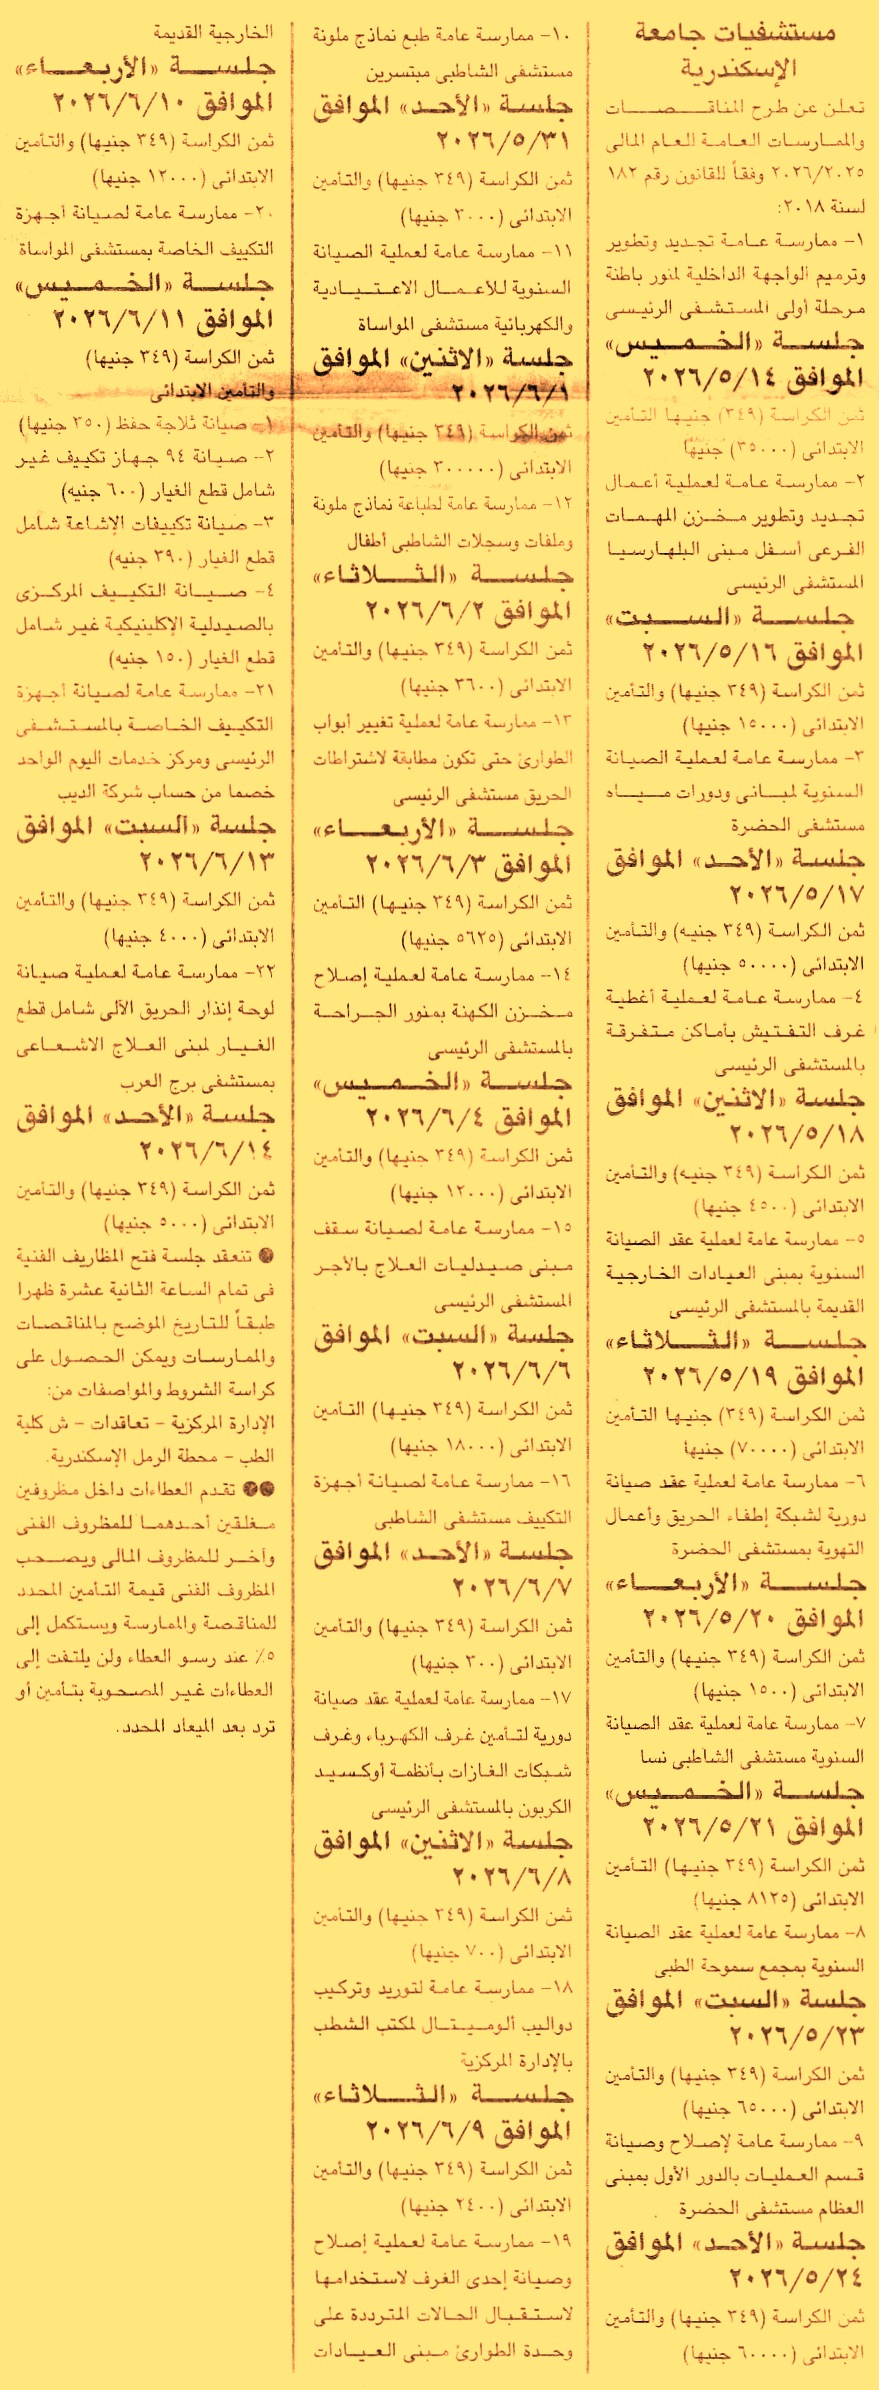 مستشفيات جامعة
الإسكندرية
تعلن عن طرح المناقصات
والممارسات العامة للعام المالى
٢٠٢٦/٢٠٢٥ وفقاً للقانون رقم ١٨٢
لسنة ٢٠١٨:
١- ممارسة عامة تجديد وتطوير
وترميم الواجهة الداخلية لمنور باطنة
مرحلة أولى المستشفى الرئيسى
جلسة «الخميس»
الموافق ٢٠٢٦/٥/١٤
ثمن الكراسة (٣٤٩) جنيها التأمين
الابتدائى (٣٥٠٠٠) جنيها
٢- ممارسة عامة لعملية أعمال
تجديد وتطوير مخزن المهمات
الفرعى أسفل مبنى البلهارسيا
المستشفى الرئيسى
جلسة «السبت»
الموافق ٢٠٢٦/٥/١٦
ثمن الكراسة (٣٤٩ جنيها) والتأمين
الابتدائى (١٥٠٠٠ جنيها)
٣- ممارسة عامة لعملية الصيانة
السنوية لمبانى ودورات مياه
مستشفى الحضرة
جلسة «الأحد» الموافق
٢٠٢٦/٥/١٧
ثمن الكراسة (٣٤٩ جنيه) والتأمين
الابتدائى (٥٠٠٠٠ جنيها)
٤- ممارسة عامة لعملية أغطية
غرف التفتيش بأماكن متفرقة
بالمستشفى الرئيسى
جلسة «الاثنين» الموافق
٢٠٢٦/٥/١٨
ثمن الكراسة (٣٤٩ جنيه) والتأمين
الابتدائى (٤٥٠٠ جنيها)
٥- ممارسة عامة لعملية عقد الصيانة
السنوية بمبنى العيادات الخارجية
القديمة بالمستشفى الرئيسى
جلسة «الثلاثاء»
الموافق ٢٠٢٦/٥/١٩
ثمن الكراسة (٣٤٩) جنيها التأمين
الابتدائى (٧٠٠٠٠) جنيها
٦- ممارسة عامة لعملية عقد صيانة
دورية لشبكة إطفاء الحريق وأعمال
التهوية بمستشفى الحضرة
جلسة «الأربعاء»
الموافق ٢٠٢٦/٥/٢٠
ثمن الكراسة (٣٤٩ جنيها) والتأمين
الابتدائى (١٥٠٠ جنيها)
٧- ممارسة عامة لعملية عقد الصيانة
السنوية مستشفى الشاطبى نسا
جلسة «الخميس»
الموافق ٢٠٢٦/٥/٢١
ثمن الكراسة (٣٤٩ جنيها) التأمين
الابتدائى (٨١٢٥ جنيها)
٨- ممارسة عامة لعملية عقد الصيانة
السنوية بمجمع سموحة الطبى
جلسة «السبت» الموافق
٢٠٢٦/٥/٢٣
ثمن الكراسة (٣٤٩ جنيها) والتأمين
الابتدائى (٦٥٠٠٠ جنيها)
٩- ممارسة عامة لإصلاح وصيانة
قسم العمليات بالدور الأول بمبنى
العظام مستشفى الحضرة
جلسة «الأحد» الموافق
٢٠٢٦/٥/٢٤
ثمن الكراسة (٣٤٩ جنيها) والتأمين
الابتدائى (٦٠٠٠٠ جنيها)
١٠- ممارسة عامة طبع نماذج ملونة
مستشفى الشاطبى مبتسرين
جلسة «الأحد» الموافق
٢٠٢٦/٥/٣١
ثمن الكراسة (٣٤٩ جنيها) والتأمين
الابتدائى (٣٠٠٠ جنيها)
١١- ممارسة عامة لعملية الصيانة
السنوية للأعمال الاعتيادية
والكهربائية مستشفى المواساة
جلسة «الاثنين» الموافق
٢٠٢٦/٦/١
ثمن الكراسة (٣٤٩ جنيها) والتأمين
الابتدائى (٣٠٠٠٠٠ جنيها)
١٢- ممارسة عامة لطباعة نماذج ملونة
وملفات وسجلات الشاطبى أطفال
جلسة «الثلاثاء»
الموافق ٢٠٢٦/٦/٢
ثمن الكراسة (٣٤٩ جنيها) والتأمين
الابتدائى (٣٦٠٠ جنيها)
١٣- ممارسة عامة لعملية تغيير أبواب
الطوارئ حتى تكون مطابقة لاشتراطات
الحريق مستشفى الرئيسى
جلسة «الأربعاء»
الموافق ٢٠٢٦/٦/٣
ثمن الكراسة (٣٤٩ جنيها) التأمين
الابتدائى (٥٦٢٥ جنيها)
١٤- ممارسة عامة لعملية إصلاح
مخزن الكهنة بمنور الجراحة
بالمستشفى الرئيسى
جلسة «الخميس»
الموافق ٢٠٢٦/٦/٤
ثمن الكراسة (٣٤٩ جنيها) والتأمين
الابتدائى (١٢٠٠٠ جنيها)
١٥- ممارسة عامة لصيانة سقف
مبنى صيدليات العلاج بالأجر
المستشفى الرئيسى
جلسة «السبت» الموافق
٢٠٢٦/٦/٦
ثمن الكراسة (٣٤٩ جنيها) التأمين
الابتدائى (١٨٠٠٠ جنيها)
١٦- ممارسة عامة لصيانة أجهزة
التكييف مستشفى الشاطبى
جلسة «الأحد» الموافق
٢٠٢٦/٦/٧
ثمن الكراسة (٣٤٩ جنيها) والتأمين
الابتدائى (٣٠٠ جنيها)
١٧- ممارسة عامة لعملية عقد صيانة
دورية لتأمين غرف الكهرباء وغرف
شبكات الغازات بأنظمة أوكسيد
الكربون بالمستشفى الرئيسى
جلسة «الاثنين» الموافق
٢٠٢٦/٦/٨
ثمن الكراسة (٣٤٩ جنيها) والتأمين
الابتدائى (٧٠٠ جنيها)
١٨- ممارسة عامة لتوريد وتركيب
دواليب ألوميتال لمكتب الشطب
بالإدارة المركزية
جلسة «الثلاثاء»
الموافق ٢٠٢٦/٦/٩
ثمن الكراسة (٣٤٩ جنيها) والتأمين
الابتدائى (٢٤٠٠ جنيها)
١٩- ممارسة عامة لعملية إصلاح
وصيانة إحدى الغرف لاستخدامها
لاستقبال الحالات المترددة على
وحدة الطوارئ مبنى العيادات
الخارجية القديمة
جلسة «الأربعاء»
الموافق ٢٠٢٦/٦/١٠
ثمن الكراسة (٣٤٩ جنيها) والتأمين
الابتدائى (١٢٠٠٠ جنيها)
٢٠- ممارسة عامة لصيانة أجهزة
التكييف الخاصة بمستشفى المواساة
جلسة «الخميس»
الموافق ٢٠٢٦/٦/١١
ثمن الكراسة (٣٤٩ جنيها)
والتأمين الابتدائى
١- صيانة ثلاجة حفظ (٣٥٠ جنيها)
٢- صيانة ٩٤ جهاز تكييف غير
شامل قطع الغيار (٦٠٠ جنيه)
٣- صيانة تكييفات الإشاعة شامل
قطع الغيار (٣٩٠ جنيه)
٤- صيانة التكييف المركزى
بالصيدلية الإكلينيكية غير شامل
قطع الغيار (١٥٠ جنيه)
٢١- ممارسة عامة لصيانة أجهزة
التكييف الخاصة بالمستشفى
الرئيسى ومركز خدمات اليوم الواحد
خصما من حساب شركة الديب
جلسة «السبت» الموافق
٢٠٢٦/٦/١٣
ثمن الكراسة (٣٤٩ جنيها) والتأمين
الابتدائى (٤٠٠٠ جنيها)
٢٢- ممارسة عامة لعملية صيانة
لوحة إنذار الحريق الآلى شامل قطع
الغيار لمبنى العلاج الاشعاعى
بمستشفى برج العرب
جلسة «الأحد» الموافق
٢٠٢٦/٦/١٤
ثمن الكراسة (٣٤٩ جنيها) والتأمين
الابتدائى (٥٠٠٠ جنيها)
● تنعقد جلسة فتح المظاريف الفنية
فى تمام الساعة الثانية عشرة ظهرا
طبقاً للتاريخ الموضح بالمناقصات
والممارسات ويمكن الحصول على
كراسة الشروط والمواصفات من:
الإدارة المركزية - تعاقدات - ش كلية
الطب - محطة الرمل الإسكندرية.
●● تقدم العطاءات داخل مظروفين
مغلقين أحدهما للمظروف الفنى
وآخر للمظروف المالى ويصحب
المظروف الفنى قيمة التأمين المحدد
للمناقصة والممارسة ويستكمل إلى
٥٪ عند رسو العطاء ولن يلتفت إلى
العطاءات غير المصحوبة بتأمين أو
ترد بعد الميعاد المحدد.